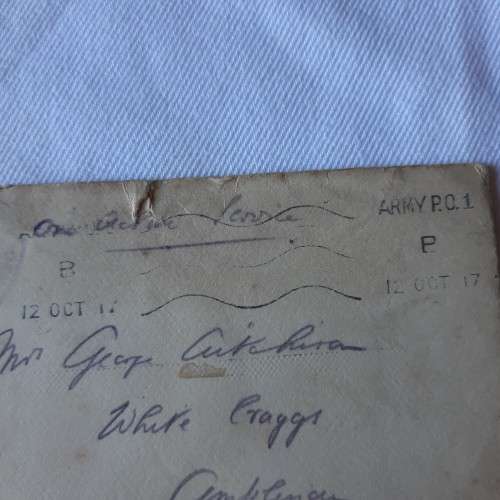 On Active Service
ARMY P.O. 1
B
P
12 OCT 17
12 OCT 17
Mrs George Aitchison
White Craggs